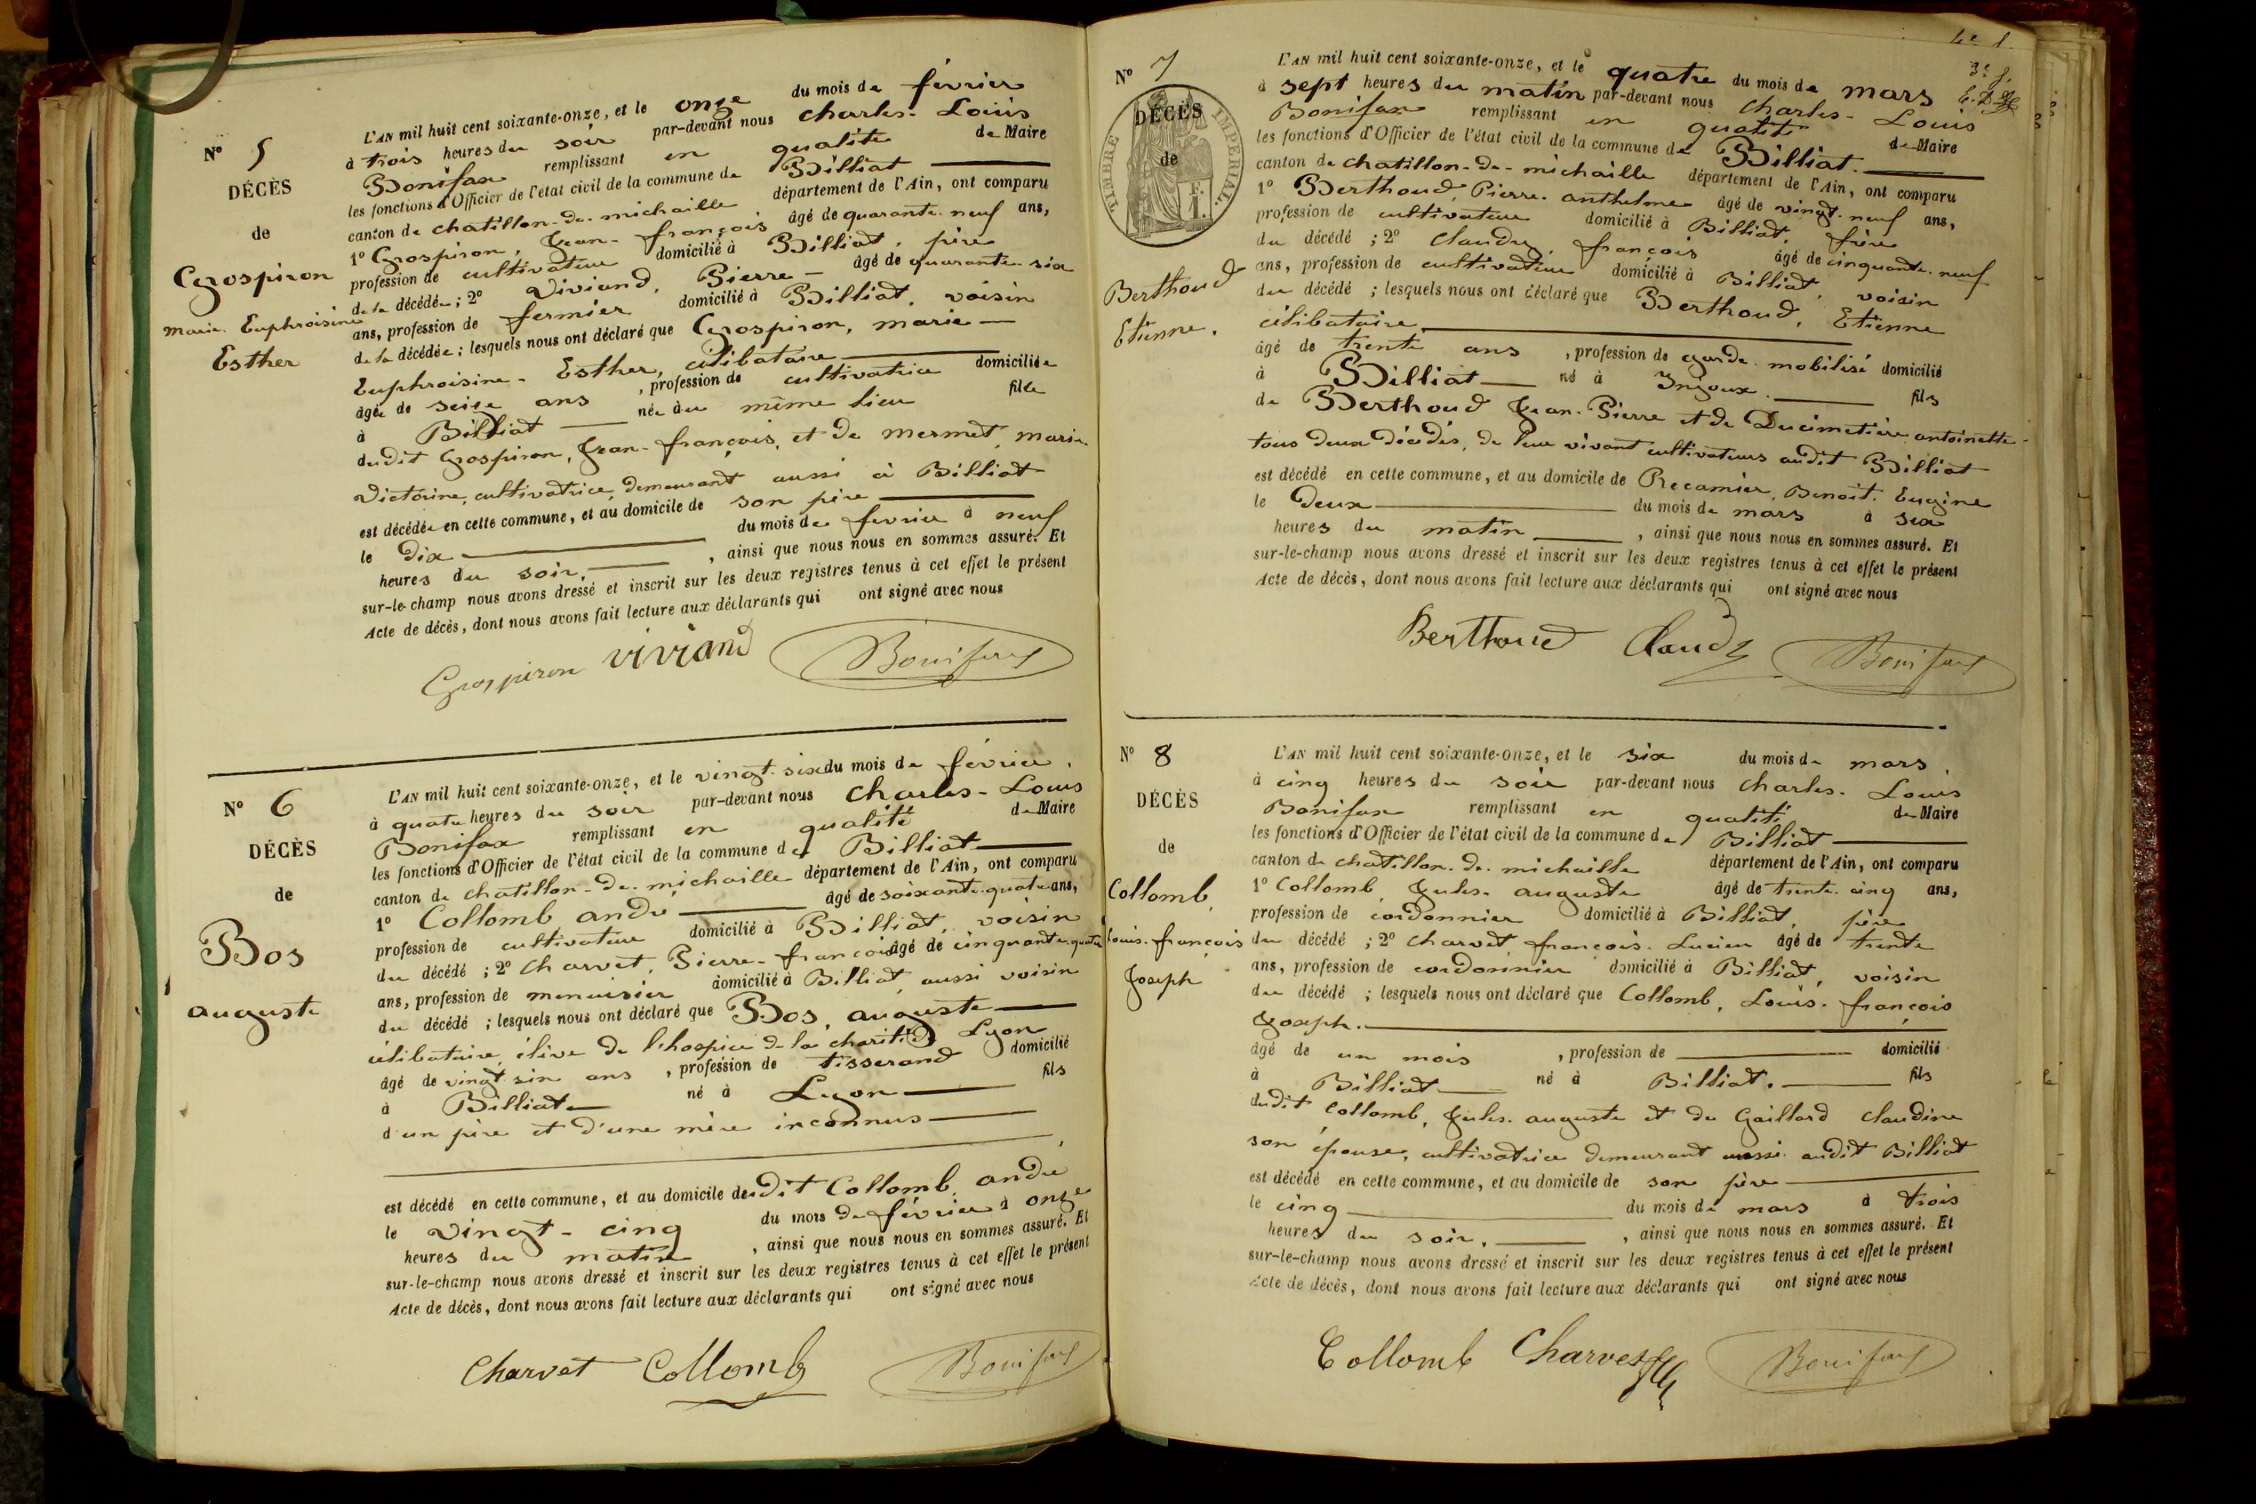 N° 5
DÉCÈS
de
Grospiron
marie Euphroisine
Esther
L'AN mil huit cent soixante-onze, et le onze du mois de février
à trois heures du soir par-devant nous Charles-Louis
Bonifax remplissant en qualité de Maire
les fonctions d'Officier de l'état civil de la commune de Billiat
canton de chatillon-de-michaille département de l'Ain, ont comparu
1° Grospiron, Jean-françois âgé de quarante-neuf ans,
profession de cultivateur domicilié à Billiat, père
de la décédée ; 2° Viviand, Pierre - âgé de quarante-six
ans, profession de fermier domicilié à Billiat, voisin
de la décédée ; lesquels nous ont déclaré que Grospiron, marie
Euphroisine-Esther, célibataire
âgée de seize ans, profession de cultivatrice domiciliée
à Billiat née du même lieu fille
dudit Grospiron, Jean-françois, et de Mermet, marie
Victorine, cultivatrice, demeurant aussi à Billiat
est décédée en cette commune, et au domicile de son père
le dix du mois de février à neuf
heures du soir, ainsi que nous nous en sommes assuré. Et
sur-le-champ nous avons dressé et inscrit sur les deux registres tenus à cet effet le présent
Acte de décès, dont nous avons fait lecture aux déclarants qui ont signé avec nous
Grospiron Viviand Bonifax
N° 6
DÉCÈS
de
Bos
auguste
L'AN mil huit cent soixante-onze, et le vingt-six du mois de février,
à quatre heures du soir par-devant nous Charles-Louis
Bonifax remplissant en qualité de Maire
les fonctions d'Officier de l'état civil de la commune de Billiat
canton de chatillon-de-michaille département de l'Ain, ont comparu
1° Collomb andré âgé de soixante-quatre ans,
profession de cultivateur domicilié à Billiat, voisin
du décédé ; 2° Charvet, Pierre-françois âgé de cinquante-quatre
ans, profession de menuisier domicilié à Billiat, aussi voisin
du décédé ; lesquels nous ont déclaré que Bos, auguste
célibataire, élève de l'hospice de la charité de Lyon
âgé de vingt-sin ans, profession de tisserand domicilié
à Billiat né à Lyon fils
d'un père et d'une mère inconnus
est décédé en cette commune, et au domicile dudit Collomb andré
le vingt-cinq du mois de février à onze
heures du matin, ainsi que nous nous en sommes assuré. Et
sur-le-champ nous avons dressé et inscrit sur les deux registres tenus à cet effet le présent
Acte de décès, dont nous avons fait lecture aux déclarants qui ont signé avec nous
Charvet Collomb Bonifax
N° 7
DÉCÈS
de
TIMBRE IMPÉRIAL.
1 F.
Berthoud
Etienne.
3e f.
L'AN mil huit cent soixante-onze, et le quatre du mois de mars
à sept heures du matin par-devant nous Charles-Louis
Bonifax remplissant en qualité de Maire
les fonctions d'Officier de l'état civil de la commune de Billiat.
canton de chatillon-de-michaille département de l'Ain, ont comparu
1° Berthoud Pierre-anthelme âgé de vingt-neuf ans,
profession de cultivateur domicilié à Billiat, frère
du décédé ; 2° Claudy, françois âgé de cinquante-neuf
ans, profession de cultivateur domicilié à Billiat, voisin
du décédé ; lesquels nous ont déclaré que Berthoud, Etienne
célibataire,
âgé de trente ans, profession de garde-mobilisé domicilié
à Billiat né à Injoux. fils
de Berthoud Jean-Pierre et de Ducimetière antoinette
tous deux décédés, de leur vivant cultivateurs audit Billiat
est décédé en cette commune, et au domicile de Recamier, Benoit-Eugène
le deux du mois de mars à six
heures du matin, ainsi que nous nous en sommes assuré. Et
sur-le-champ nous avons dressé et inscrit sur les deux registres tenus à cet effet le présent
Acte de décès, dont nous avons fait lecture aux déclarants qui ont signé avec nous
Berthoud Claudy Bonifax
N° 8
DÉCÈS
de
Collomb,
Louis-françois
Joseph
L'AN mil huit cent soixante-onze, et le six du mois de mars,
à cinq heures du soir par-devant nous Charles-Louis
Bonifax remplissant en qualité de Maire
les fonctions d'Officier de l'état civil de la commune de Billiat
canton de chatillon-de-michaille département de l'Ain, ont comparu
1° Collomb, Jules-auguste âgé de trente-cinq ans,
profession de cordonnier domicilié à Billiat, père
du décédé ; 2° Charvet françois-Lucien âgé de trente
ans, profession de cordonnier domicilié à Billiat, voisin
du décédé ; lesquels nous ont déclaré que Collomb, Louis-françois
Joseph.
âgé de un mois, profession de domicilié
à Billiat né à Billiat. fils
dudit Collomb, Jules-auguste et de Gaillard Claudine
son épouse, cultivatrice demeurant aussi audit Billiat
est décédé en cette commune, et au domicile de son père
le cinq du mois de mars à trois
heures du soir, ainsi que nous nous en sommes assuré. Et
sur-le-champ nous avons dressé et inscrit sur les deux registres tenus à cet effet le présent
Acte de décès, dont nous avons fait lecture aux déclarants qui ont signé avec nous
Collomb Charvet Bonifax